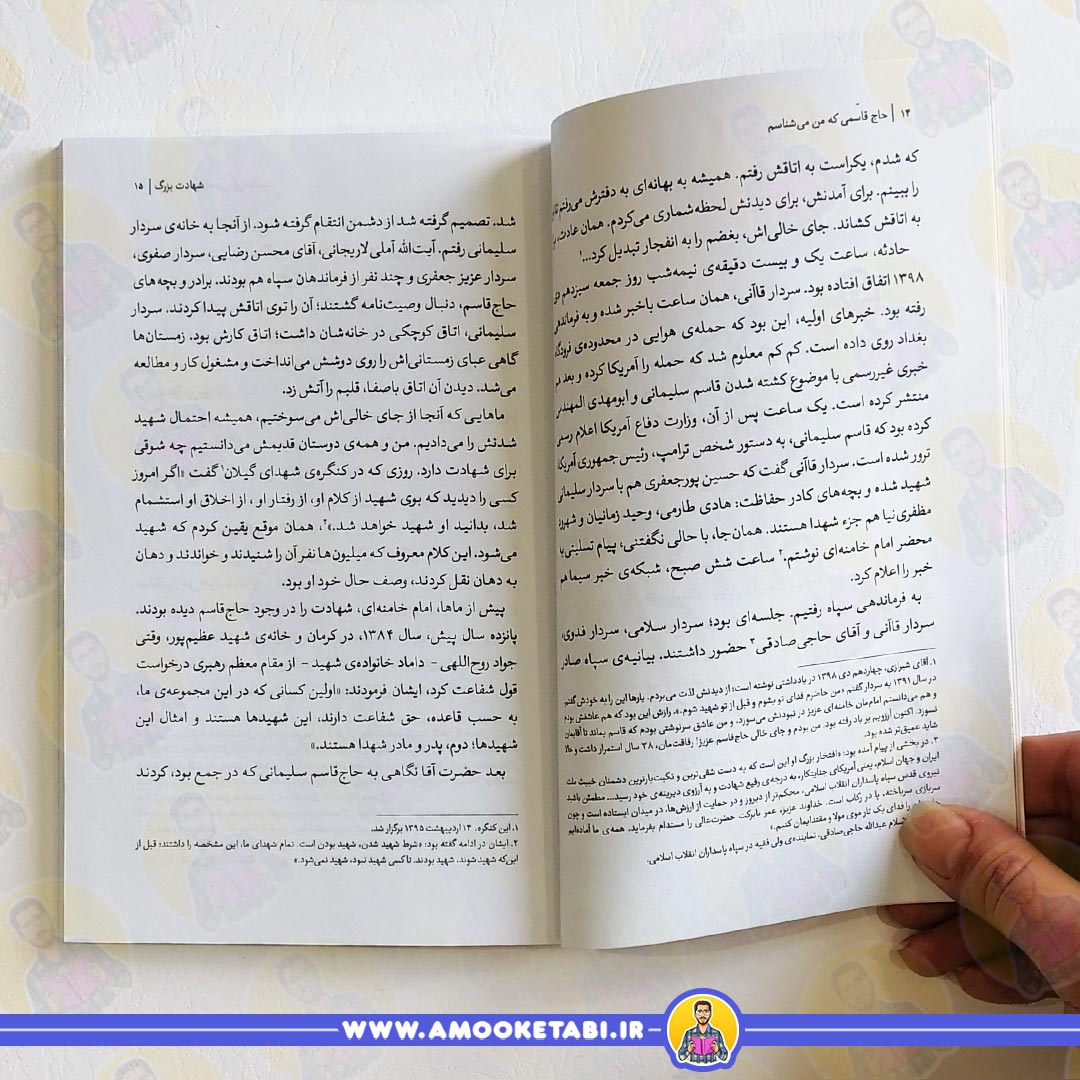 ۱۴ | حاج قاسمی که من می‌شناسم
که شدم، یکراست به اتاقش رفتم. همیشه به بهانه‌ای به دفترش می‌رفتم تا او
را ببینم. برای آمدنش، برای دیدنش لحظه‌شماری می‌کردم. همان عادت،
به اتاقش کشاند. جای خالی‌اش، بغضم را به انفجار تبدیل کرد...۱
حادثه، ساعت یک و بیست دقیقه‌ی نیمه‌شب روز جمعه سیزدهم دی
۱۳۹۸ اتفاق افتاده بود. سردار قاآنی، همان ساعت باخبر شده و به فرماندهی
رفته بود. خبرهای اولیه، این بود که حمله‌ی هوایی در محدوده‌ی فرودگاه
بغداد روی داده است. کم کم معلوم شد که حمله را آمریکا کرده و بعد هم
خبری غیررسمی با موضوع کشته شدن قاسم سلیمانی و ابومهدی المهندس
منتشر کرده است. یک ساعت پس از آن، وزارت دفاع آمریکا اعلام رسمی
کرده بود که قاسم سلیمانی، به دستور شخص ترامپ، رئیس جمهوری آمریکا،
ترور شده است. سردار قاآنی گفت که حسین پورجعفری هم با سردار سلیمانی
شهید شده و بچه‌های کادر حفاظت: هادی طارمی، وحید زمانیان و شهروز
مظفری‌نیا هم جزء شهدا هستند. همان‌جا، با حالی نگفتنی، پیام تسلیتی به
محضر امام خامنه‌ای نوشتم.۲ ساعت شش صبح، شبکه‌ی خبر سیما هم
خبر را اعلام کرد.
به فرماندهی سپاه رفتیم. جلسه‌ای بود؛ سردار سلامی، سردار فدوی،
سردار قاآنی و آقای حاجی‌صادقی۳ حضور داشتند. بیانیه‌ی سپاه صادر
۱. آقای شیرازی، چهاردهم دی ۱۳۹۸ در یادداشتی نوشته است: از دیدنش لذت می‌بردم. بارها این را به خودش گفتم.
در سال ۱۳۹۱ به سردار گفتم «من حاضرم فدای تو بشوم و قبل از تو شهید شوم.»، رازش این بود که هم عاشقش بودم
و هم می‌دانستم امام‌مان خامنه‌ای عزیز در نبودنش می‌سوزد، و من عاشق سرنوشتی بودم که قاسم بماند تا آقایمان
نسوزد. اکنون آرزویم بر باد رفته بود. من بودم و جای خالی حاج‌قاسم عزیز! رفاقت‌مان، ۳۸ سال استمرار داشت و حالا
شاید عمیق‌تر شده بود.
۲. در بخشی از پیام آمده بود: «افتخار بزرگ او این است که به دست شقی‌ترین و نکبت‌بارترین دشمنان خبیث ملت
ایران و جهان اسلام، یعنی آمریکای جنایتکار، به درجه‌ی رفیع شهادت و به آرزوی دیرینه‌ی خود رسید... مطمئن باشید
نیروی قدس سپاه پاسداران انقلاب اسلامی، محکم‌تر از دیروز و در حمایت از ارزش‌ها، در میدان ایستاده است و چون
سربازی سرباخته، پا در رکاب است. خداوند عزیز، عمر بابرکت حضرت‌عالی را مستدام بفرماید. همه‌ی ما آماده‌ایم
را فدای یک تار موی مولا و مقتدایمان کنیم.»
عبدالله حاجی‌صادقی، نماینده‌ی ولی فقیه در سپاه پاسداران انقلاب اسلامی.
شهادت بزرگ | ۱۵
شد. تصمیم گرفته شد از دشمن انتقام گرفته شود. از آنجا به خانه‌ی سردار
سلیمانی رفتم. آیت‌الله آملی لاریجانی، آقای محسن رضایی، سردار صفوی،
سردار عزیز جعفری و چند نفر از فرماندهان سپاه هم بودند. برادر و بچه‌های
حاج‌قاسم، دنبال وصیت‌نامه گشتند؛ آن را توی اتاقش پیدا کردند. سردار
سلیمانی، اتاق کوچکی در خانه‌شان داشت؛ اتاق کارش بود. زمستان‌ها
گاهی عبای زمستانی‌اش را روی دوشش می‌انداخت و مشغول کار و مطالعه
می‌شد. دیدن آن اتاق باصفا، قلبم را آتش زد.
ماهایی که آنجا از جای خالی‌اش می‌سوختیم، همیشه احتمال شهید
شدنش را می‌دادیم. من و همه‌ی دوستان قدیمش می‌دانستیم چه شوقی
برای شهادت دارد. روزی که در کنگره‌ی شهدای گیلان۱ گفت «اگر امروز
کسی را دیدید که بوی شهید از کلام او، از رفتار او، از اخلاق او استشمام
شد، بدانید او شهید خواهد شد.»۲، همان موقع یقین کردم که شهید
می‌شود. این کلام معروف که میلیون‌ها نفر آن را شنیدند و خواندند و دهان
به دهان نقل کردند، وصف حال خود او بود.
پیش از ماها، امام خامنه‌ای، شهادت را در وجود حاج‌قاسم دیده بودند.
پانزده سال پیش، سال ۱۳۸۴، در کرمان و خانه‌ی شهید عظیم‌پور، وقتی
جواد روح‌اللهی - داماد خانواده‌ی شهید - از مقام معظم رهبری درخواست
قول شفاعت کرد، ایشان فرمودند: «اولین کسانی که در این مجموعه‌ی ما،
به حسب قاعده، حق شفاعت دارند، این شهیدها هستند و امثال این
شهیدها؛ دوم، پدر و مادر شهدا هستند.»
بعد حضرت آقا نگاهی به حاج‌قاسم سلیمانی که در جمع بود، کردند
۱. این کنگره، ۱۴ اردیبهشت ۱۳۹۵ برگزار شد.
۲. ایشان در ادامه گفته بود: «شرط شهید شدن، شهید بودن است. تمام شهدای ما، این مشخصه را داشتند؛ قبل از
این‌که شهید شوند، شهید بودند. تا کسی شهید نبود، شهید نمی‌شود.»
WWW.AMOOKETABI.IR